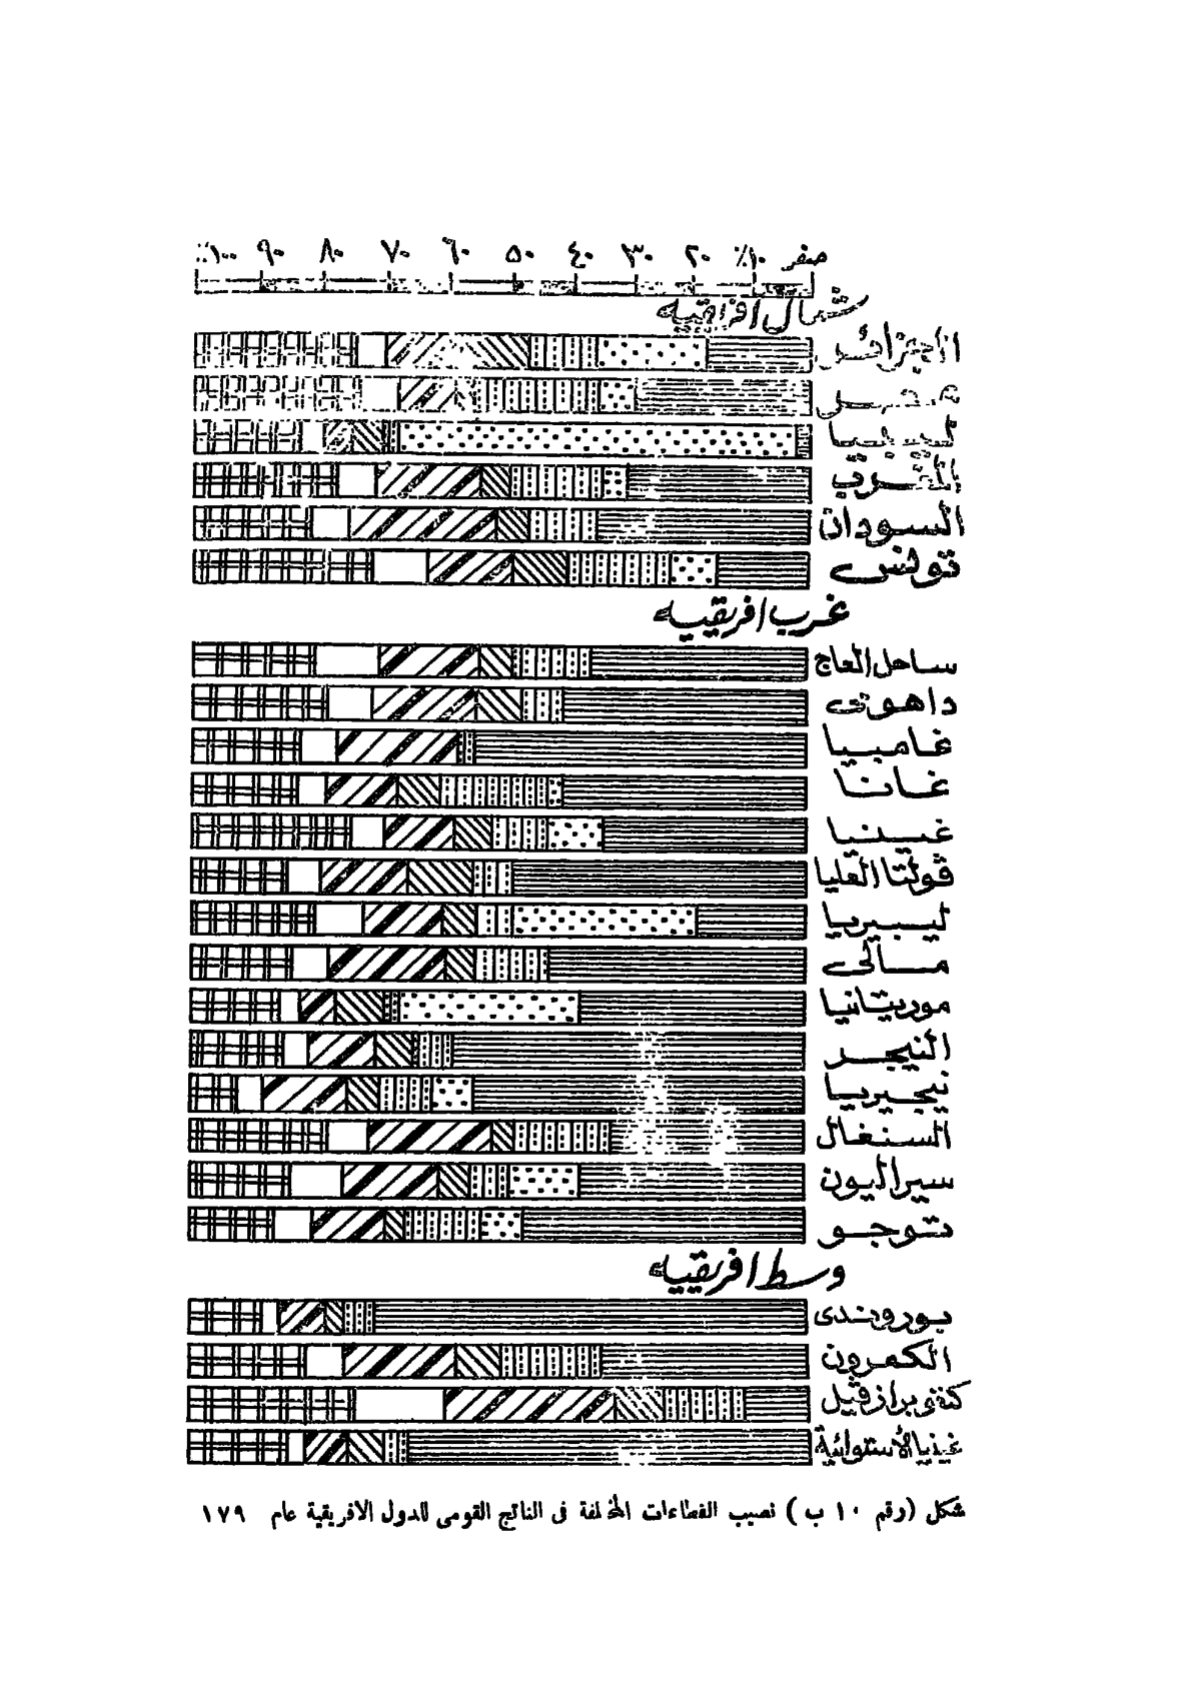 صفر ١٠٪ ٢٠ ٣٠ ٤٠ ٥٠ ٦٠ ٧٠ ٨٠ ٩٠ ١٠٠٪
شمال افريقيه
الجزائر
مصر
ليبيا
المغرب
السودان
تونس
غرب افريقيه
ساحل العاج
داهومى
غامبيا
غانا
غينيا
ڤولتا العليا
ليبيريا
مالى
موريتانيا
النيجر
نيجيريا
السنغال
سيراليون
توجو
وسط افريقيه
بوروندى
الكمرون
كنغو برازڤيل
غينيا الأستوائية
شكل (رقم ١٠ ب) نصيب القطاعات المختلفة فى الناتج القومى للدول الافريقية عام ١٧٩